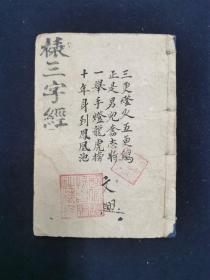 三更燈火五更鷄
正是男兒奮志時
一舉手燈龍虎榜
十年身到鳳凰池
文興
三字經